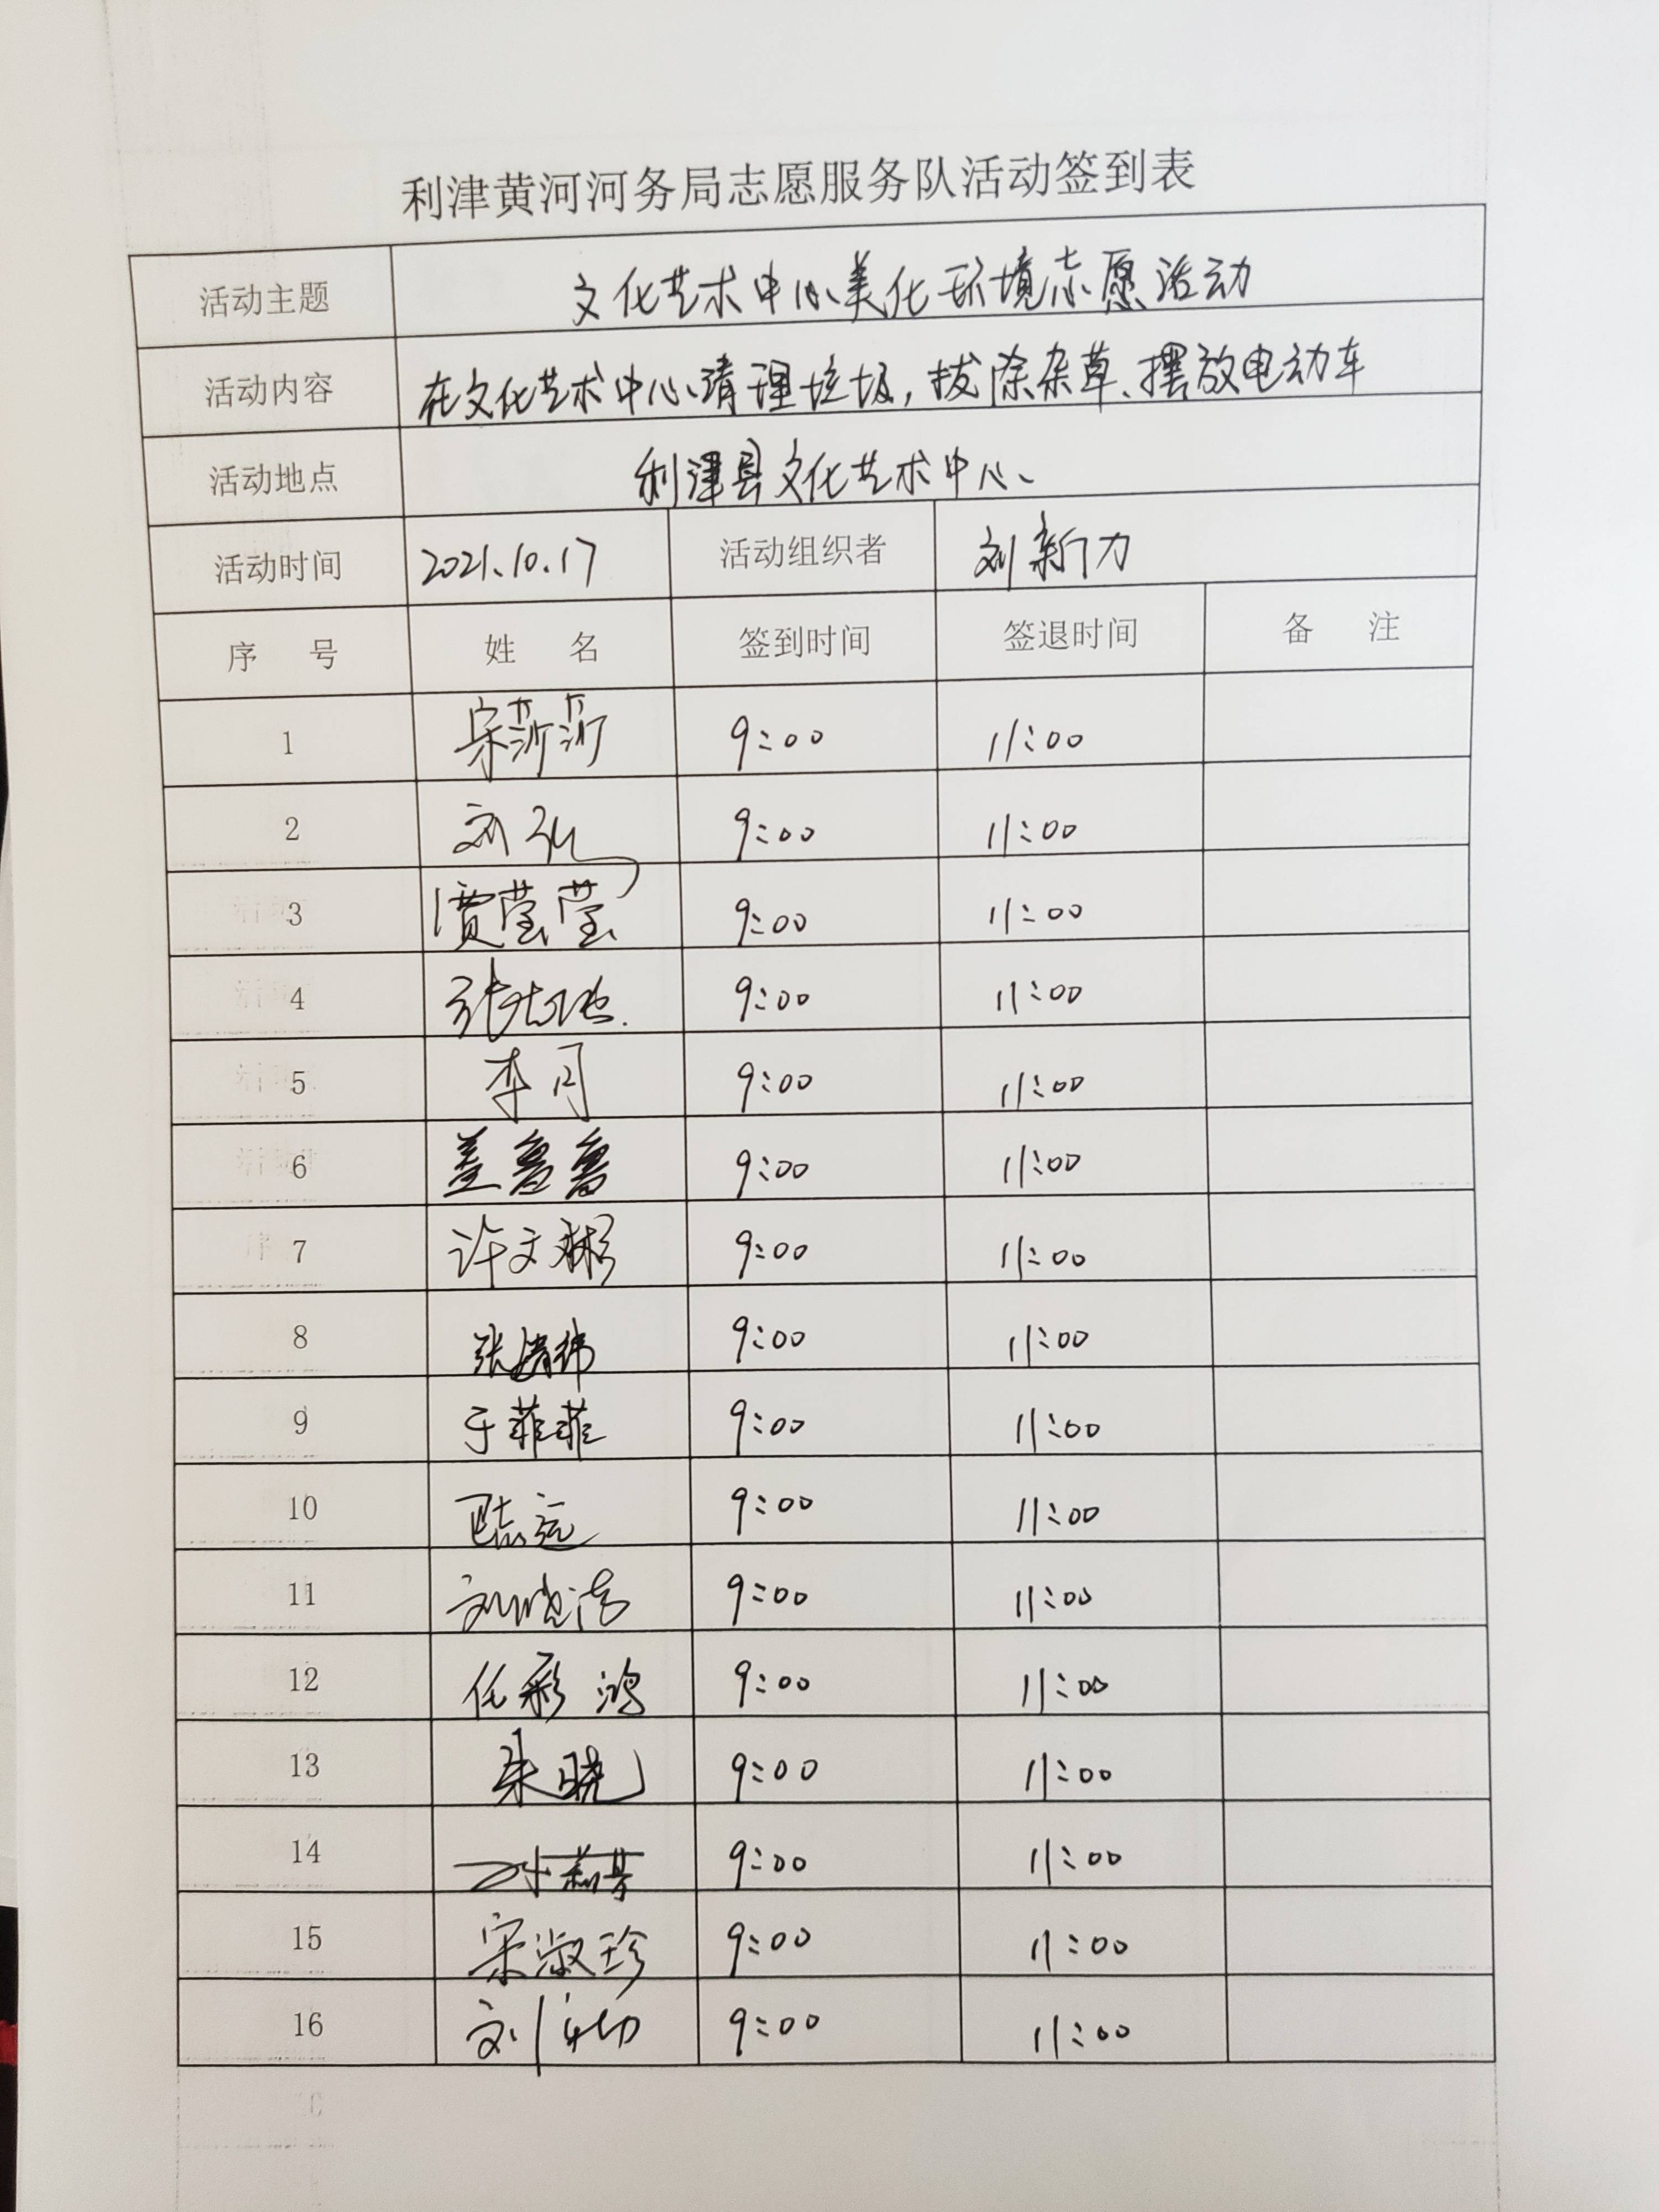 利津黄河河务局志愿服务队活动签到表
活动主题 文化艺术中心美化环境志愿活动
活动内容 在文化艺术中心清理垃圾,拔除杂草、摆放电动车
活动地点 利津县文化艺术中心、
活动时间 2021.10.17 活动组织者 刘新力
序 号 姓 名 签到时间 签退时间 备 注
1 宋莎莎 9:00 11:00
2 刘弘 9:00 11:00
3 贾莹莹 9:00 11:00
4 张 9:00 11:00
5 李月 9:00 11:00
6 盖鲁鲁 9:00 11:00
7 许文彬 9:00 11:00
8 张清伟 9:00 11:00
9 于菲菲 9:00 11:00
10 9:00 11:00
11 刘晓洁 9:00 11:00
12 任彩鸿 9:00 11:00
13 朱晓 9:00 11:00
14 9:00 11:00
15 宋淑珍 9:00 11:00
16 刘 9:00 11:00